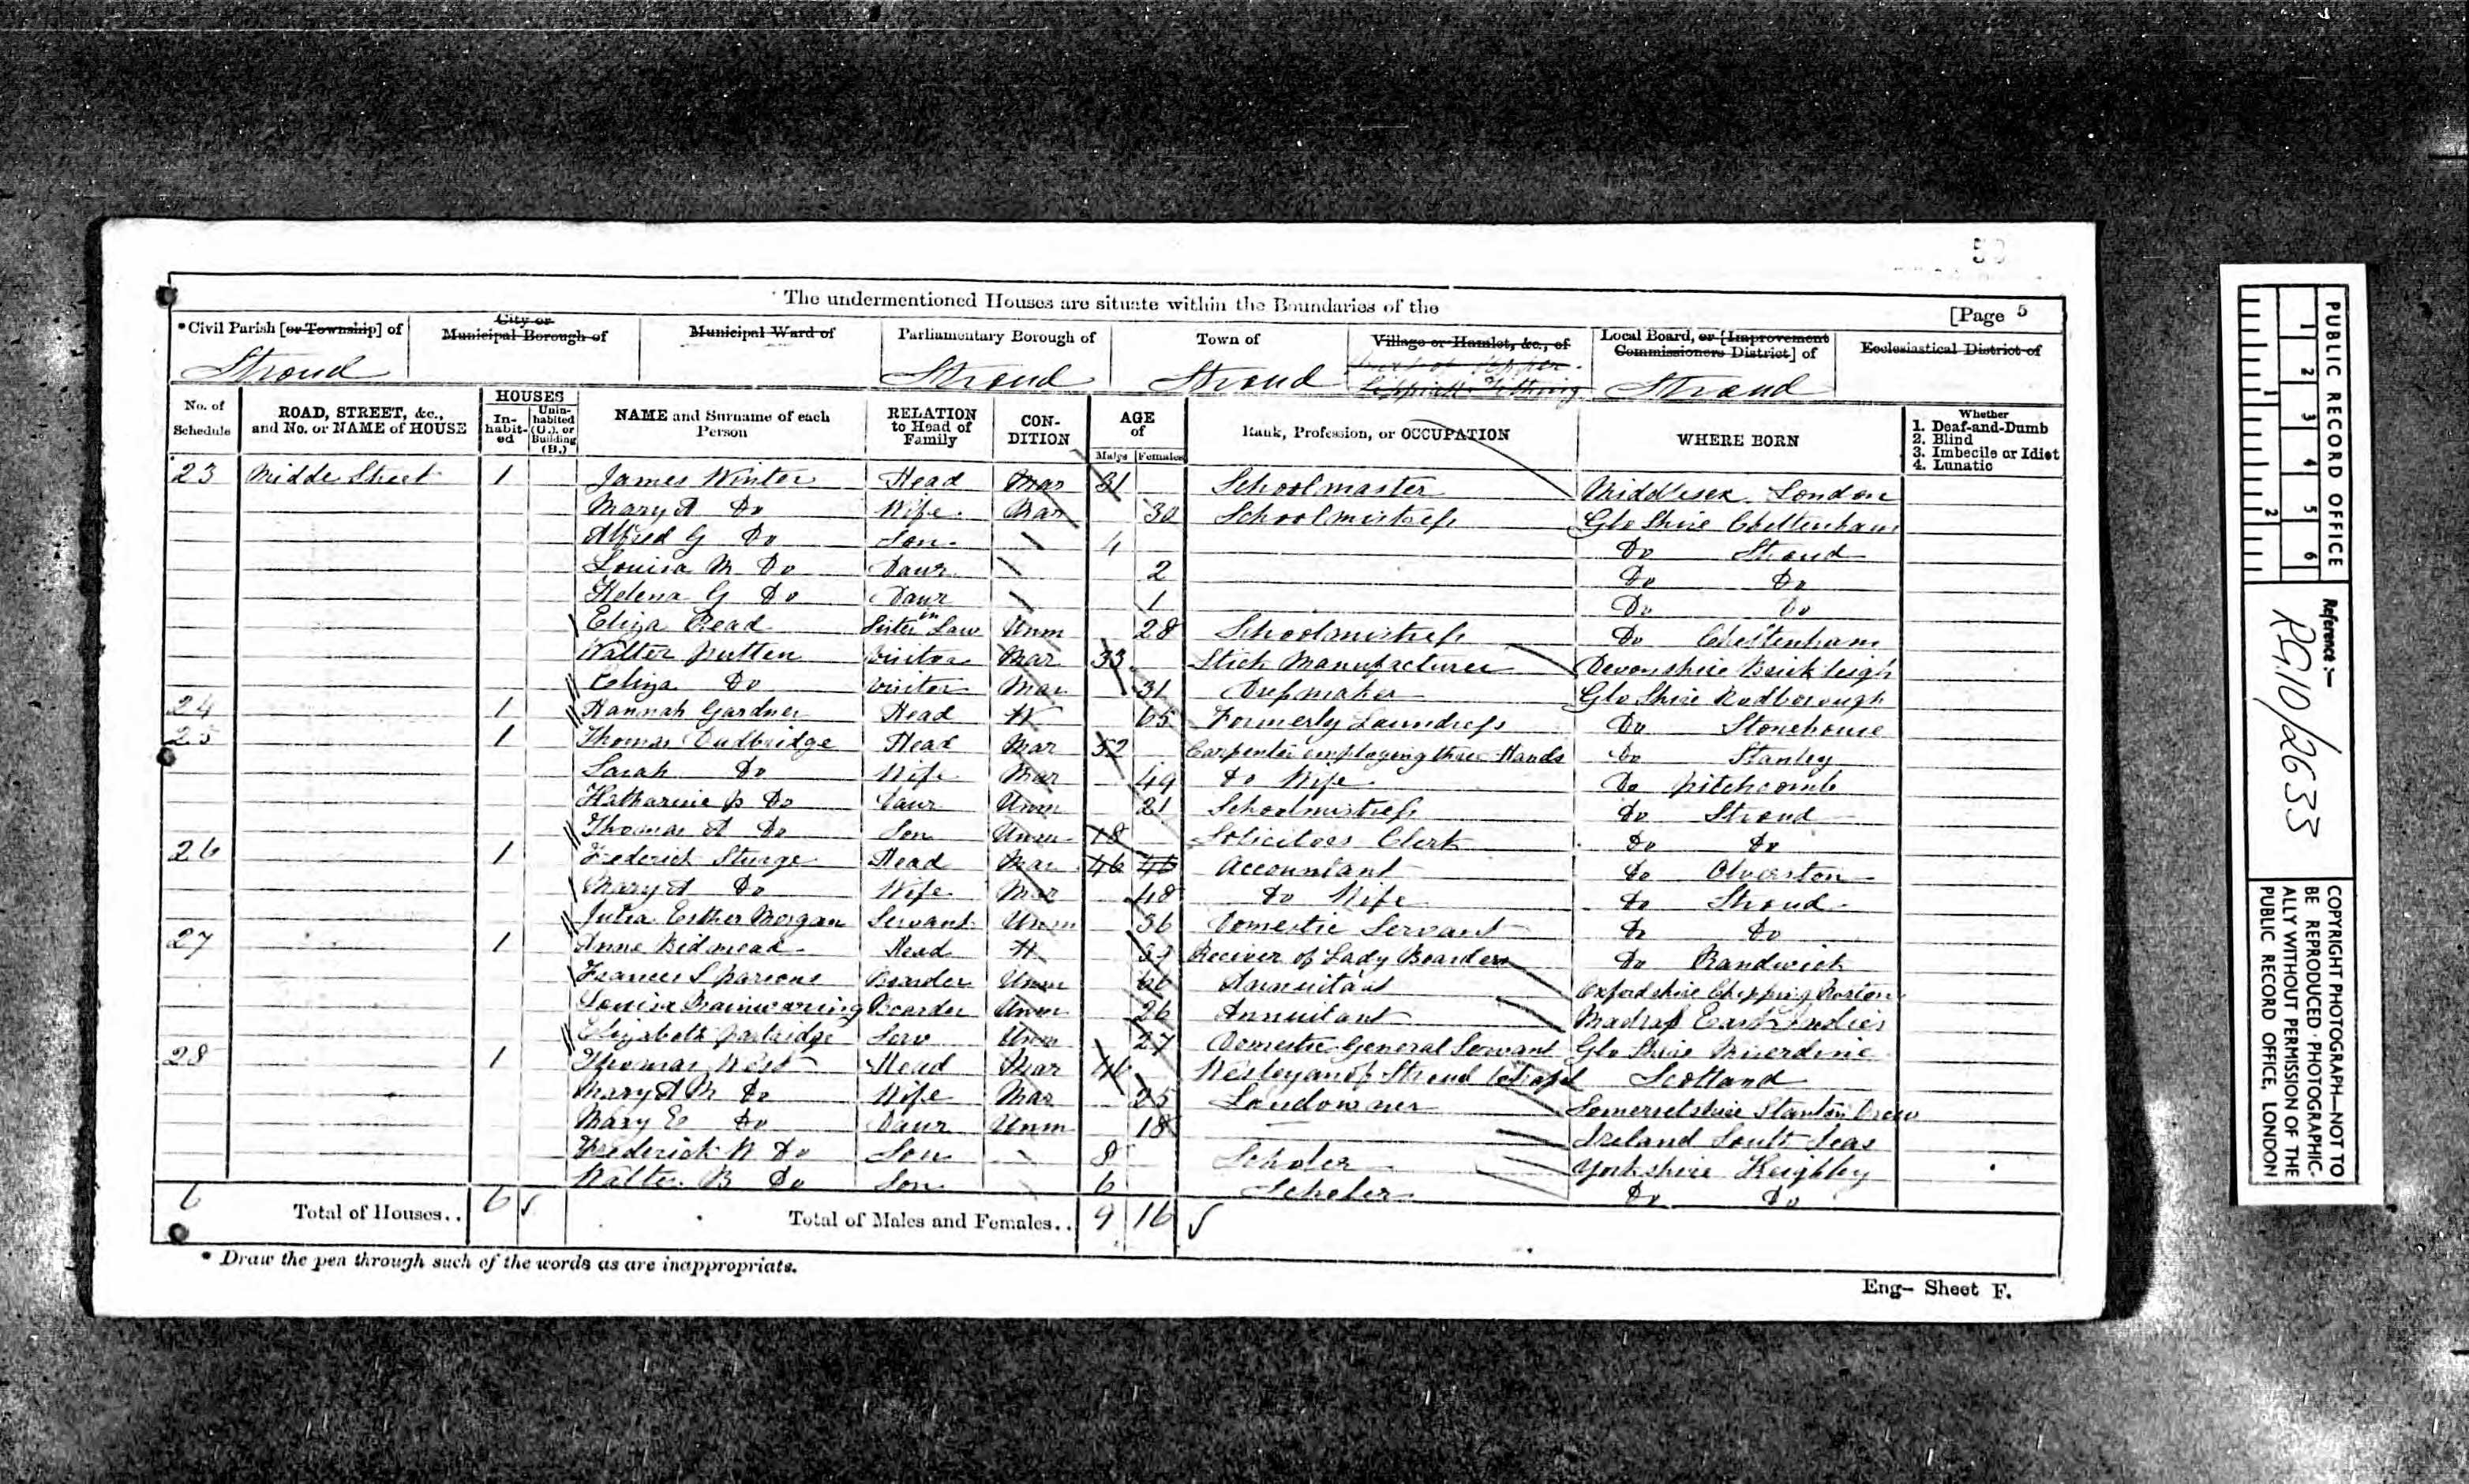 50
The undermentioned Houses are situate within the Boundaries of the
[Page 5
*Civil Parish [or Township] of
City or Municipal Borough of
Municipal Ward of
Parliamentary Borough of
Town of
Village or Hamlet, &c., of
Local Board, or [Improvement Commissioners District] of
Ecclesiastical District of
Stroud Stroud Stroud Stroud
No. of Schedule
ROAD, STREET, &c., and No. or NAME of HOUSE
HOUSES
In-habit-ed
Unin-habited (U.), or Building (B.)
NAME and Surname of each Person
RELATION to Head of Family
CON-DITION
AGE of
Males Females
Rank, Profession, or OCCUPATION
WHERE BORN
Whether
1. Deaf-and-Dumb
2. Blind
3. Imbecile or Idiot
4. Lunatic
23 Middle Street 1 James Winter Head Mar 31 Schoolmaster Middlesex London
Mary A Do Wife Mar 30 Schoolmistress Glo Shire Cheltenham
Alfred G Do Son 4 Do Stroud
Louisa M Do Daur 2 Do Do
Helena G Do Daur 1 Do Do
Eliza Read Sister in Law Unm 28 Schoolmistress Do Cheltenham
Walter Visitor Mar 33 Stick Manufacturer Devonshire
Eliza Do Visitor Mar 31 Dressmaker Glo Shire Rodborough
24 1 Hannah Gardner Head W 65 Formerly Laundress Do Stonehouse
25 1 Thomas Dudbridge Head Mar 52 Carpenter employing three Hands Do Stanley
Sarah Do Wife Mar 49 Do Wife Do Pitchcomb
Katharine P Do Daur Unm 21 Schoolmistress Do Stroud
Thomas A Do Son Unm 18 Solicitors Clerk Do Do
26 1 Frederick Sturge Head Mar 46 46 Accountant Do Olverston
Mary A Do Wife Mar 48 Do Wife Do Stroud
Julia Esther Morgan Servant Unm 36 Domestic Servant Do Do
27 1 Anne Bidmead Head W Reciever of Lady Boarders Do Randwick
Frances S Parsons Boarder Unm 60 Annuitant Oxfordshire Chipping Norton
Louisa Mainwaring Boarder Unm 26 Annuitant Madras East Indies
Elizabeth Partridge Serv Unm 27 Domestic General Servant Glo Shire Miserdine
28 1 Thomas West Head Mar 46 Wesleyan of Stroud Chapel Scotland
Mary A M Do Wife Mar 25 Landowner Somersetshire Stanton Drew
Mary E Do Daur Unm 18 Seas
Frederick W Do Son 8 Scholer Yorkshire Keighley
Walter B Do Son 6 Scholer Do Do
6 Total of Houses.. 6 Total of Males and Females.. 9 16
* Draw the pen through such of the words as are inappropriate.
Eng- Sheet F.
PUBLIC RECORD OFFICE
1 2 3 4 5 6
1 2
Reference:-
RG10/2633
COPYRIGHT PHOTOGRAPH-NOT TO
BE REPRODUCED PHOTOGRAPHIC-
ALLY WITHOUT PERMISSION OF THE
PUBLIC RECORD OFFICE, LONDON